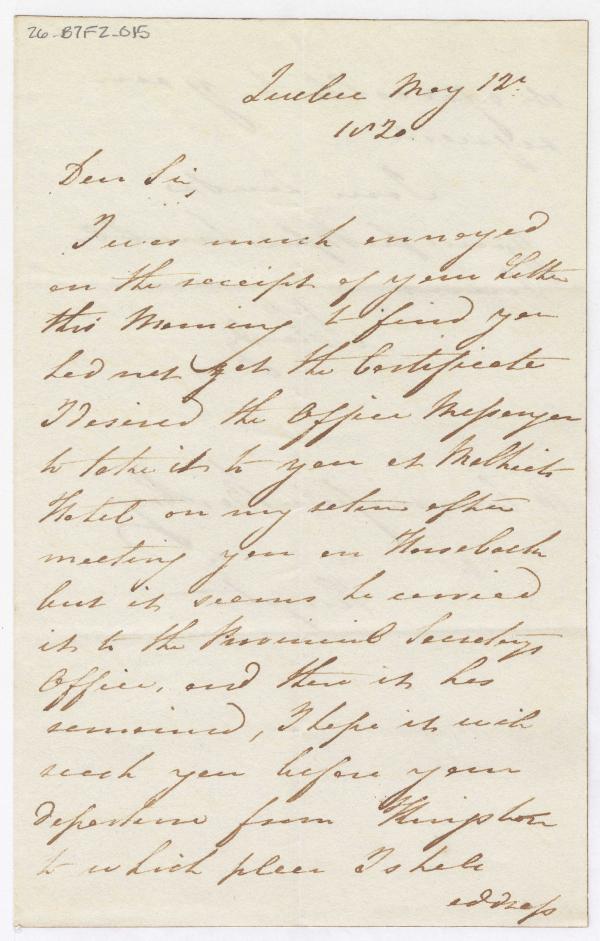 26-B7F2-015
Quebec May 12th
1820
Dear Sir,
I was much annoyed
on the receipt of your Letter
this Morning to find you
had not got the Certificate
I desired the Office Messenger
to take it to you at Malhiots
Hotel on my return after
meeting you on Horseback
but it seems he carried
it to the Provincial Secretarys
Office, and there it has
remained, I hope it will
reach you before your
departure from Kingston
to which place I shall
address